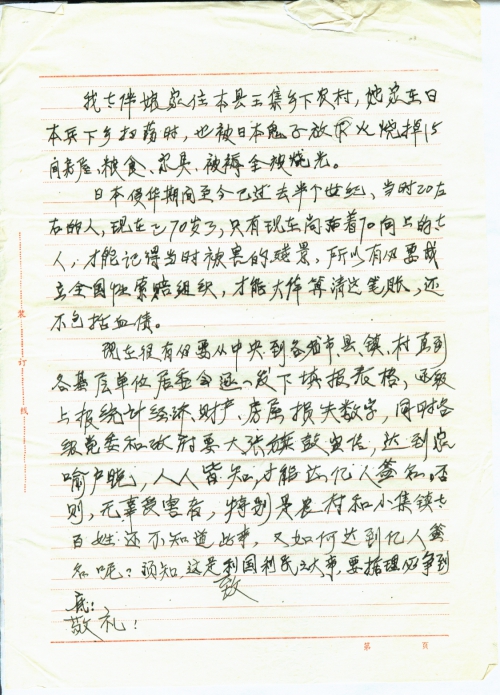 我七伴娘家住本县王集乡下农村，她家在日
本兵下乡扫荡时，也被日本鬼子放火烧掉15
间房屋、粮食、家具、被褥全被烧光。
日本侵华期间至今已过去半个世纪，当时20左
右的人，现在已70岁了，只有现在尚活着70向上的老
人，才能记得当时被害的残景，所以有必要成
立全国性索赔组织，才能大伴算清这笔账，还
不包括血债。
现在很有必要从中央到各省市、县、镇、村直到
各基层单位居委会逐一发下填报表格，逐级
上报统计经济、财产、房屋损失数字，同时各
级党委和政府要大张旗鼓宣传，达到家
喻户晓，人人皆知，才能达亿人签名。否
则，无辜受害者，特别是农村和小集镇老
百姓还不知道此事，又如何达到亿人签
名呢？须知，这是利国利民之大事，要据理必争到
底！
致
敬礼！
装 订 线
第 页